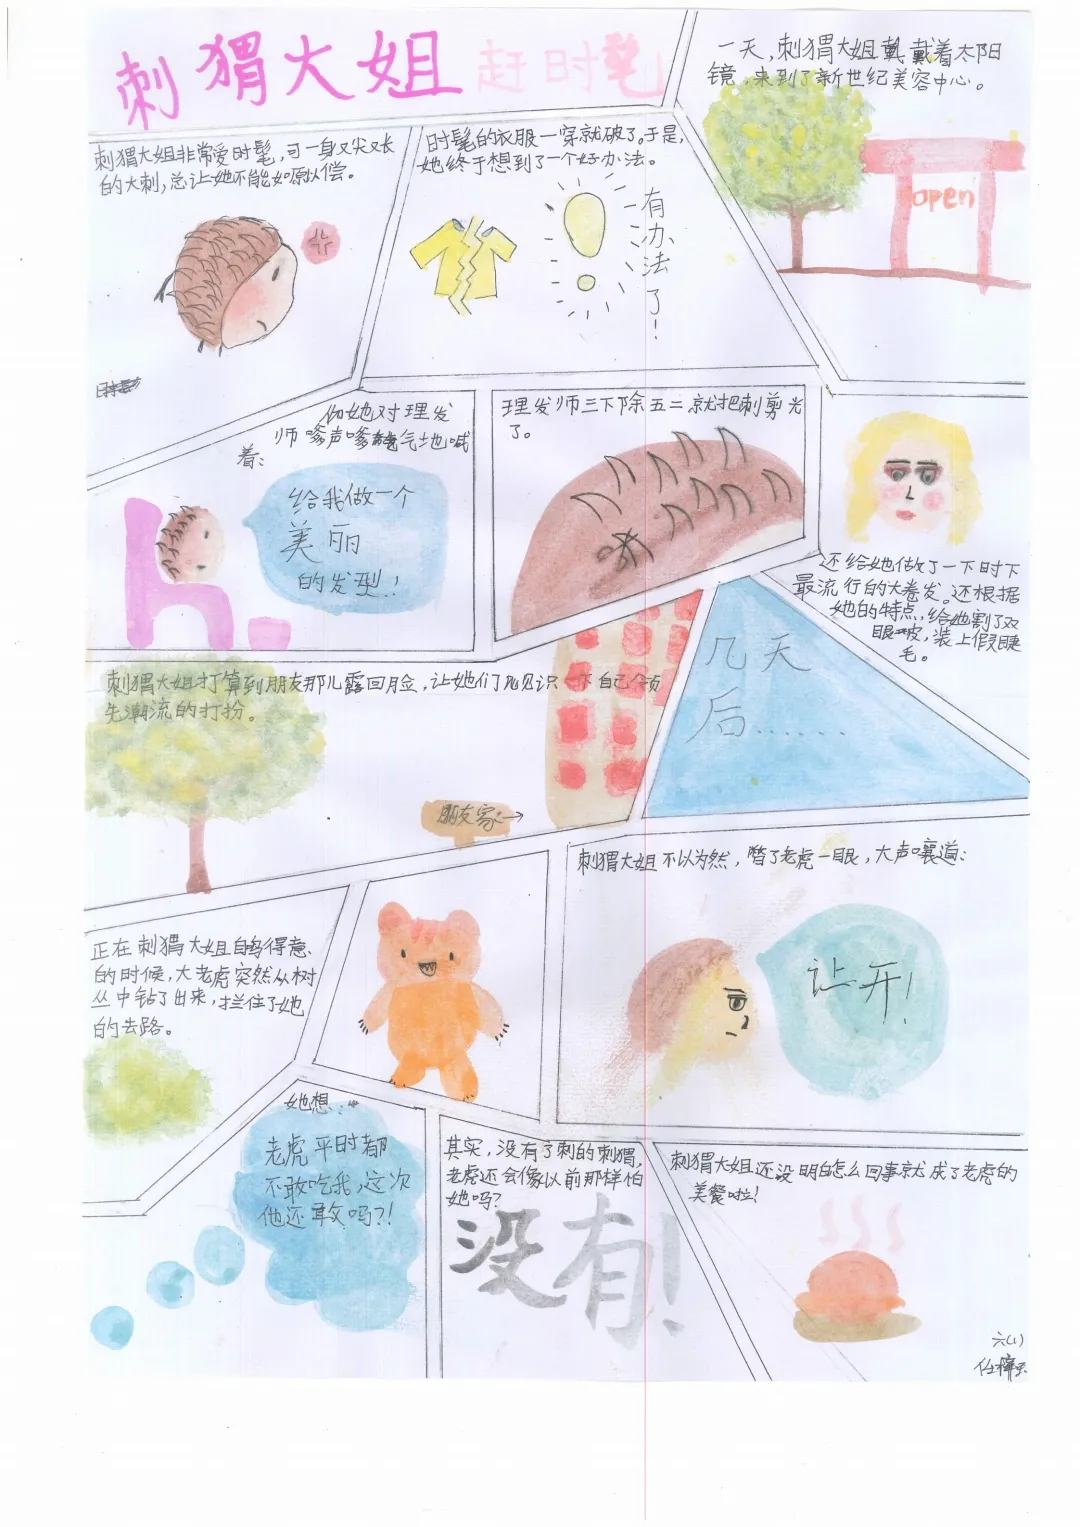 刺猬大姐 赶时髦
刺猬大姐非常爱时髦,可一身又尖又长
的大刺,总让她不能如原以偿。
时髦的衣服一穿就破了。于是,
她终于想到了一个好办法。
有办法了!
一天,刺猬大姐戴着太阳
镜,来到了新世纪美容中心。
open
她对理发
师嗲声嗲气地喊
着:
给我做一个
美丽
的发型!
理发师三下除五二就把刺剪光
了。
还给她做了一下时下
最流行的大卷发。还根据
她的特点,给她割了双
眼皮,装上假睫
毛。
几天
后......
刺猬大姐打算到朋友那儿露回脸,让她们见识一下自己领
先潮流的打扮。
朋友家→
正在刺猬大姐自鸣得意
的时候,大老虎突然从树
丛中钻了出来,拦住了她
的去路。
刺猬大姐不以为然,瞥了老虎一眼,大声嚷道:
让开!
她想:
老虎平时都
不敢吃我,这次
他还敢吗?!
其实,没有了刺的刺猬,
老虎还会像以前那样怕
她吗?
没有!
刺猬大姐还没明白怎么回事就成了老虎的
美餐啦!
六(1)